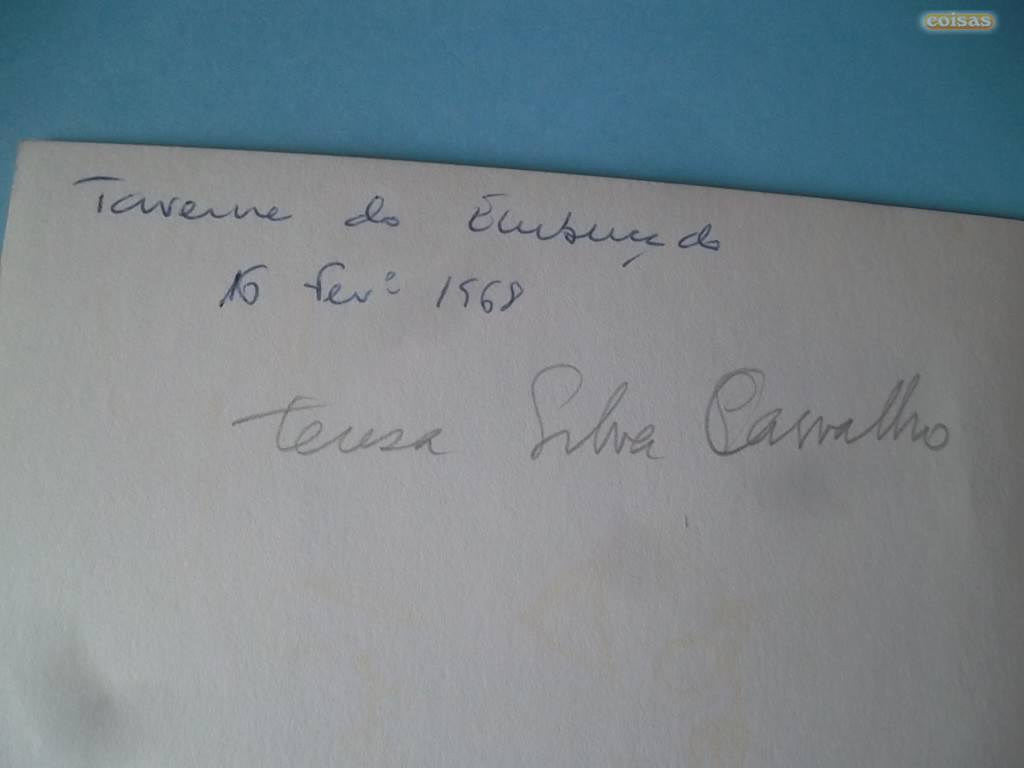 coisas
Taverna do Embuçado
16 Fevº 1968
Teresa Silva Carvalho